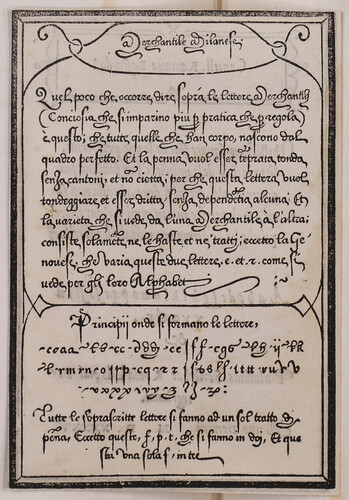 Merchantile Milanese.
Quel poco che, occorre dire sopra, le lettere Merchantili
(Conciosia che si imparino piu p pratica che p regola)
è questo; che tutte quelle che han corpo, nascono dal
quadro perfetto. Et la penna vuol esser teprata tonda
senza cantoni, et nō ciotta; per che questa lettera vuol
tondeggiare et esser dritta senza dependētia alcuna; Et
la varieta che si vede da l'una Merchantile à l'altra;
consiste solamēte ne le haste et ne tratti; eccetto la Ge
nouese, che varia queste due lettere, e. et. r. come si
vede per gli loro Alphabet
Principii onde si formano le lettere,
Tutte le soprascritte lettere si fanno ad un sol tratto di
pēna, Eccetto queste, f. p. t. che si fanno in doi, Et que
sta una sola f. in tre